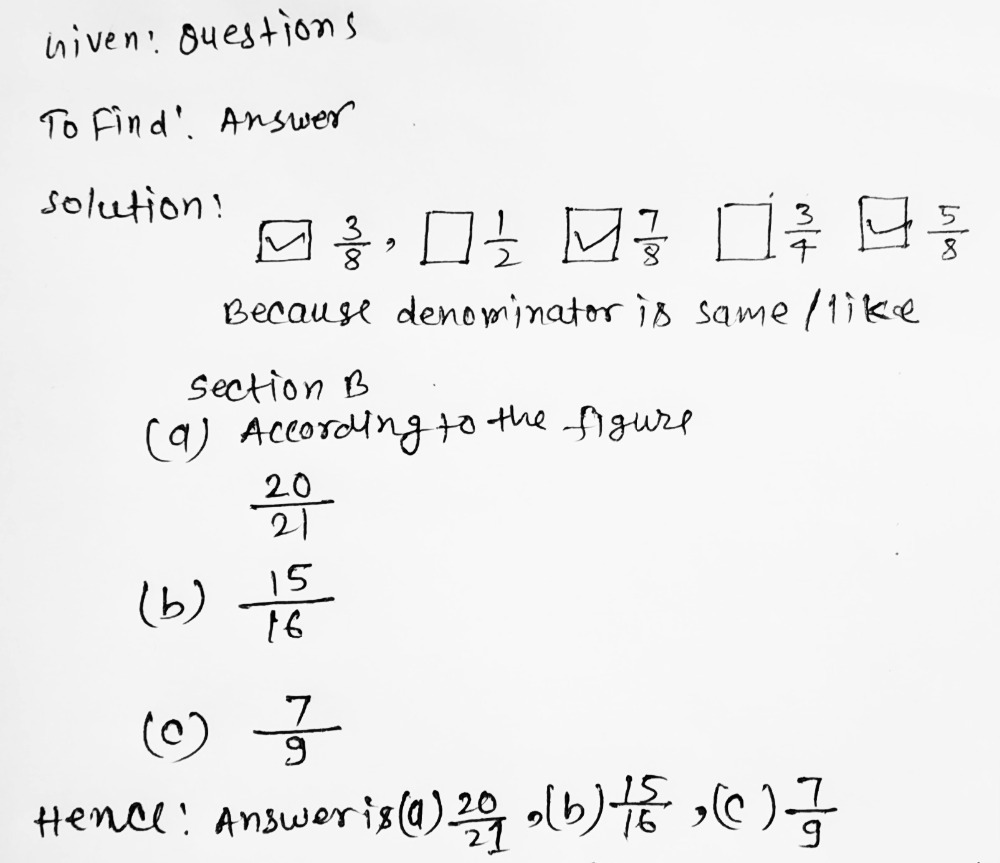 Given: Questions
To Find: Answer
Solution:
☑ 3/8, ☐ 1/2 ☑ 7/8 ☐ 3/4 ☑ 5/8
Because denominator is same/like
Section B
(a) According to the figure
20/21
(b) 15/16
(c) 7/9
Hence: Answer is (a) 20/21, (b) 15/16, (c) 7/9